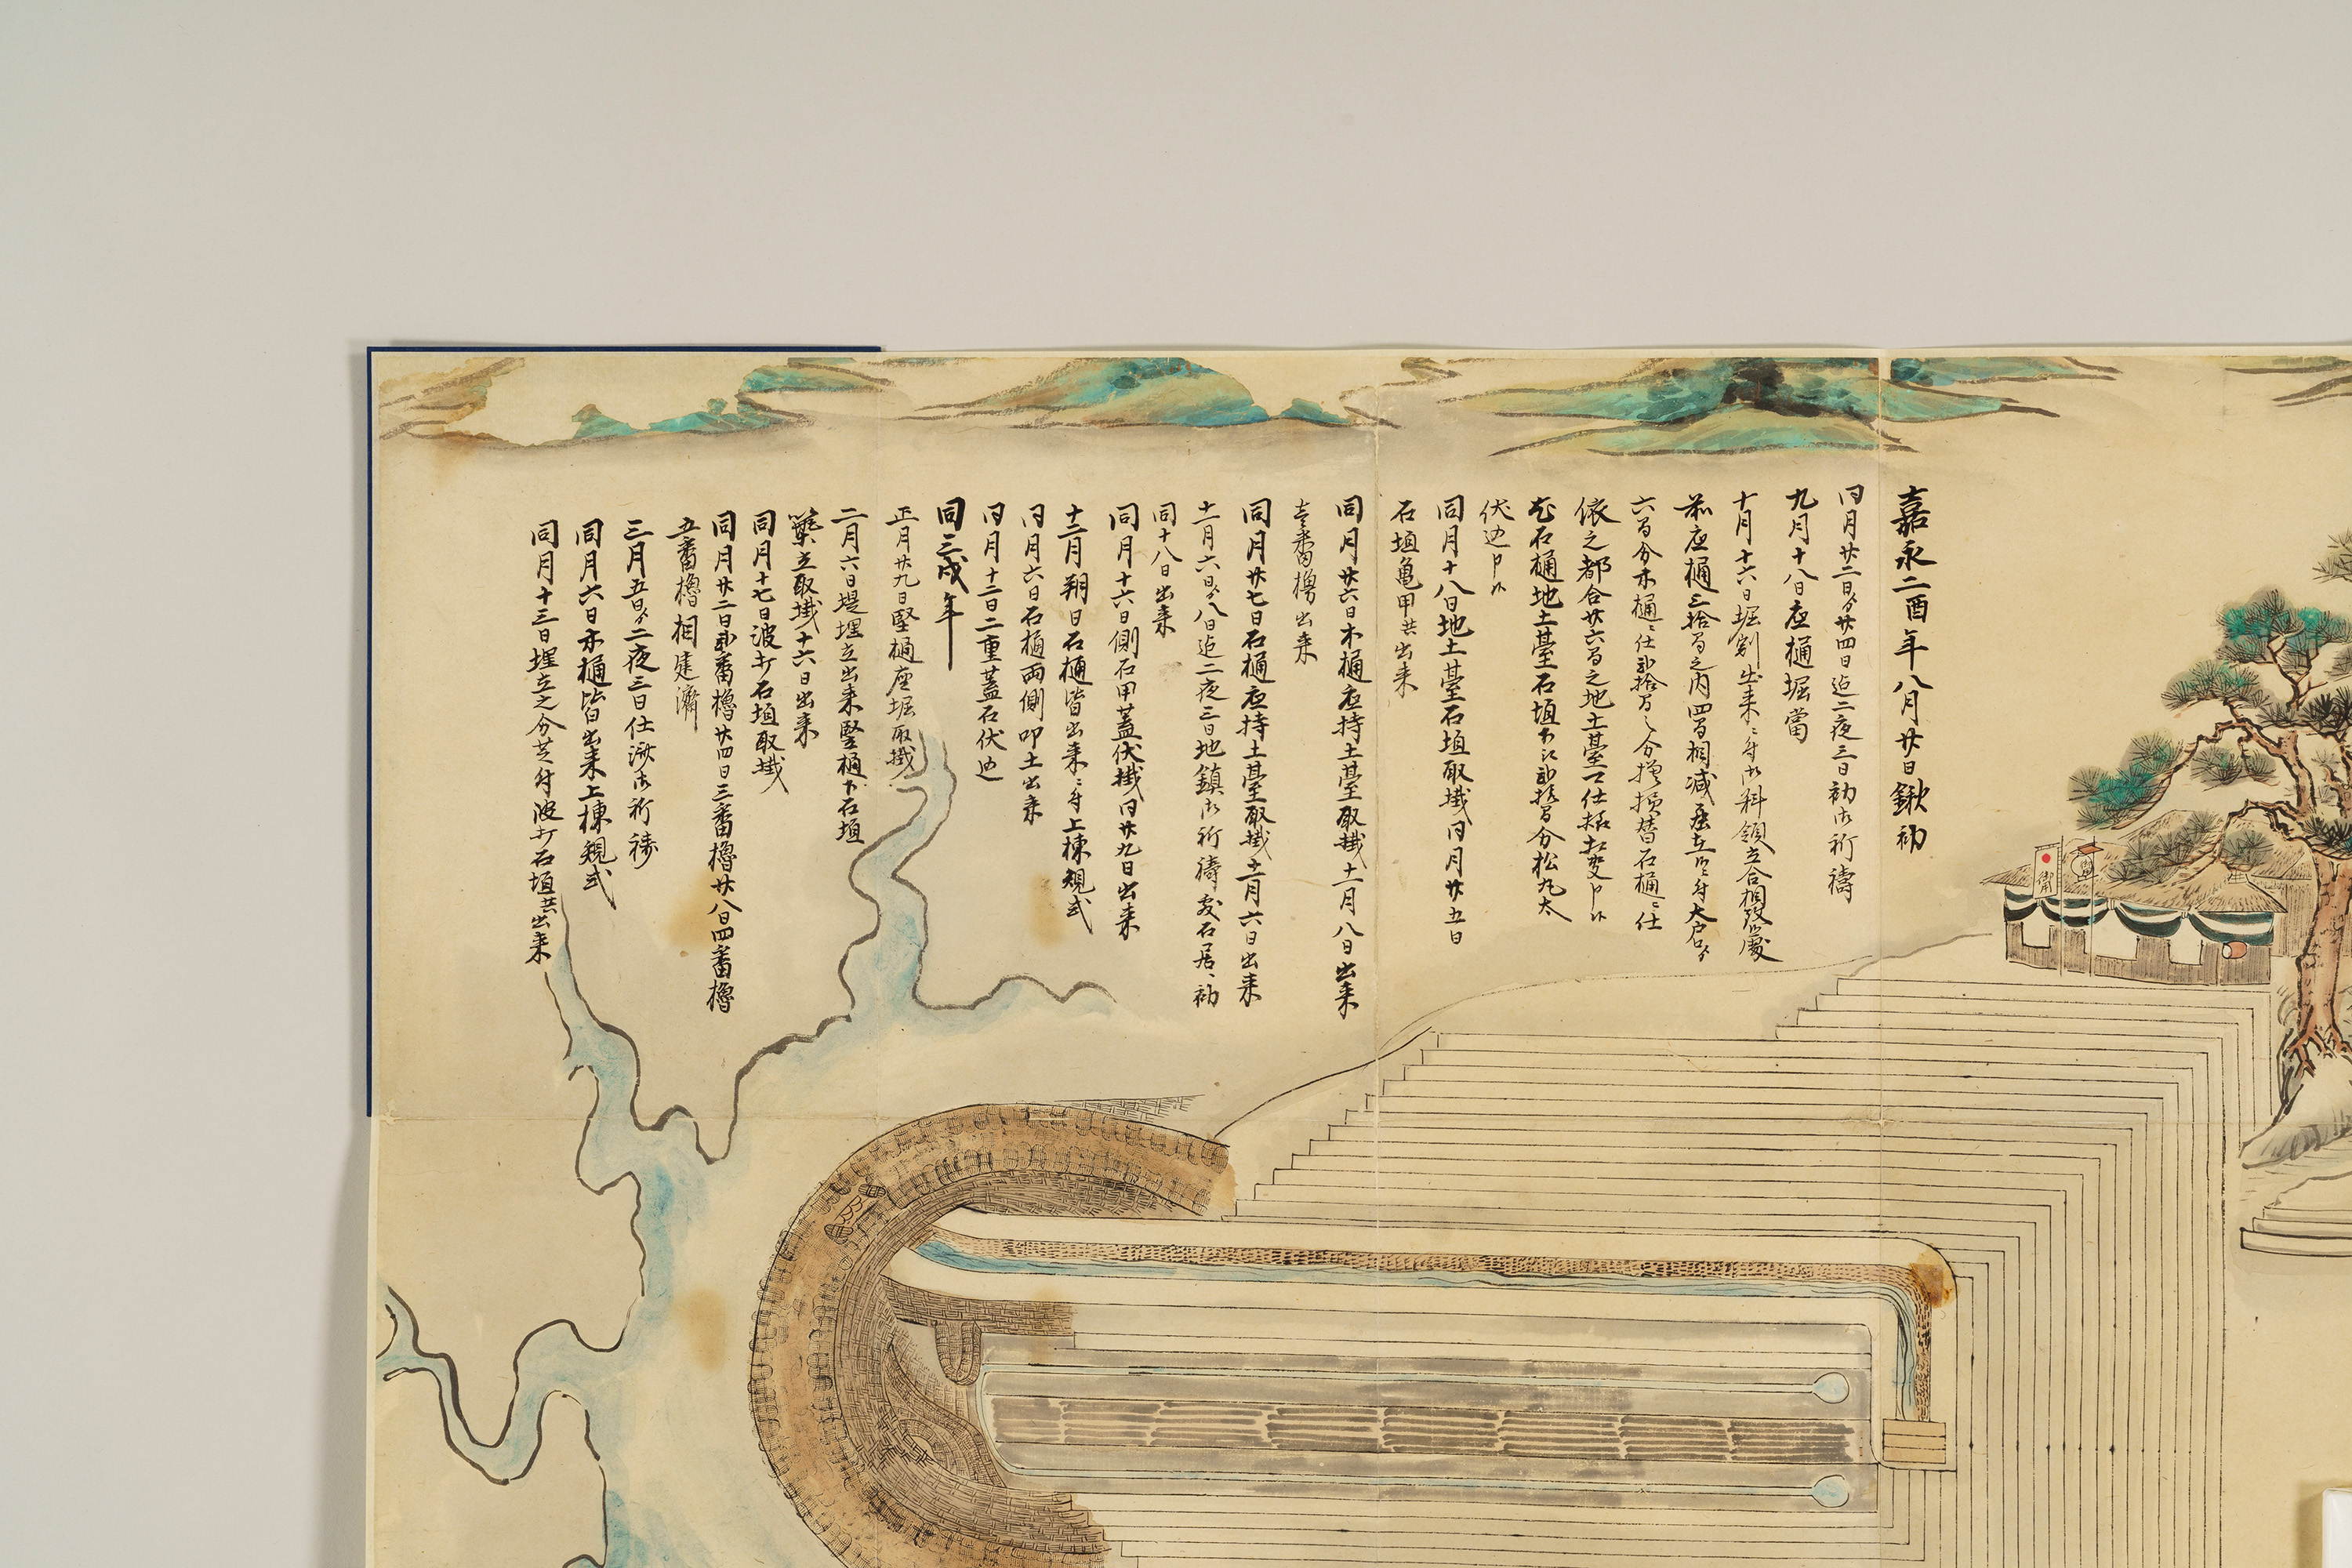 嘉永二酉年八月廿日鍬初
同月廿二日ゟ廿四日迄二夜三日初御祈禱
九月十八日底樋堀當
十月十六日堀割出来ニ付御料領立合相改候處
前底樋三拾間之内四間相減居立申ニ付大戸ゟ
六間分木樋ニ仕弐拾間之分増損替石樋ニ仕
依之都合廿六間之地土臺
石樋地土臺石垣下江弐拾間分松丸太
伏込申候
同月十八日地土臺石垣取掛同月廿五日
石垣亀甲共出来
同月廿六日木樋底持土臺取掛十一月八日出来
壱番櫓出来
同月廿七日石樋底持土臺取掛十一月六日出来
十一月六日ゟ八日迄二夜三日地鎮御祈禱敷石居初
同十八日出来
同月十六日側石甲蓋伏掛同廿九日出来
十二月朔日石樋皆出来ニ付上棟規式
同月六日石樋両側叩土出来
同月十二日二重蓋石伏込
同三戌年
正月廿九日竪樋座堀取掛
二月六日堤埋立出来竪樋下石垣
築立取掛十六日出来
同月十七日波打石垣取掛
同月廿二日弐番櫓廿四日三番櫓廿八日四番櫓
五番櫓相建濟
三月五日ゟ二夜三日仕渡御祈禱
同月六日木樋皆出来上棟規式
同月十三日埋立之分芝付波打石垣共出来
御用